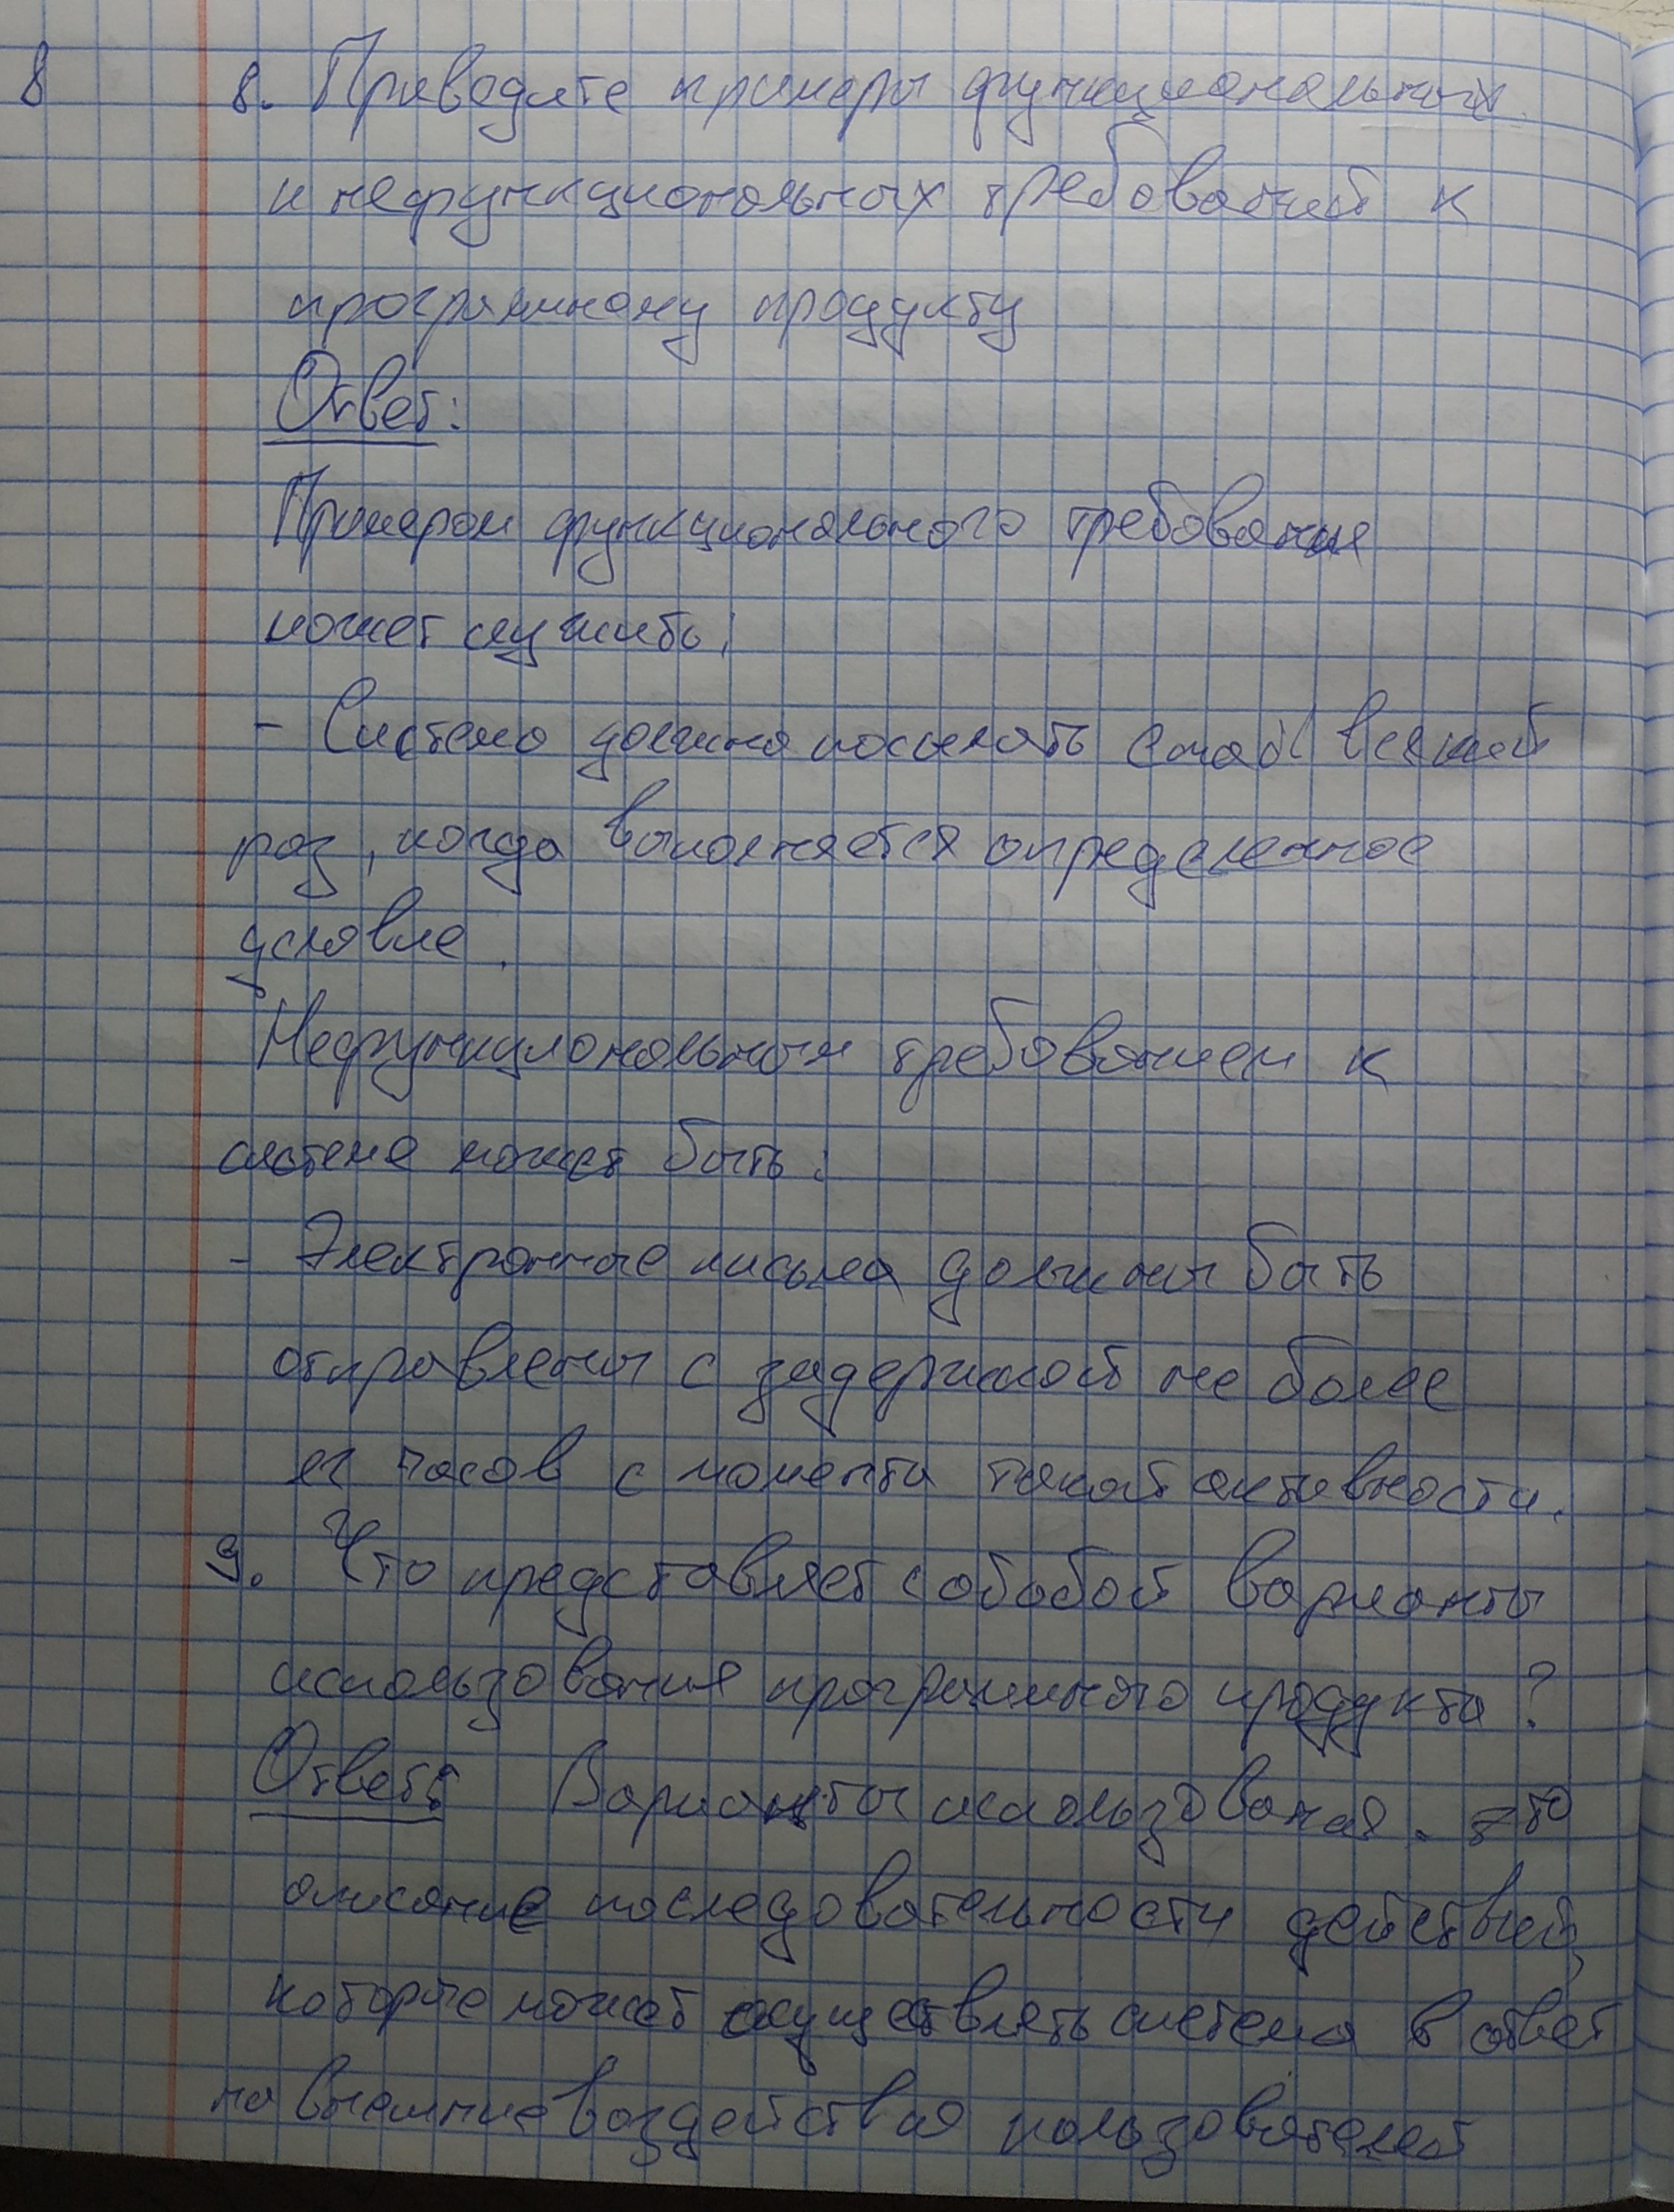 8
8. Приведите примеры функциональных
и нефункциональных требований к
программному продукту
Ответ:
Примером функционального требования
может служить:
- Система должна посылать email всякий
раз, когда выполняется определенное
условие.
Нефункциональным требованием к
системе может быть:
- Электронные письма должны быть
отправлены с задержкой не более
часов с момента такой активности.
9. Что представляет собобой варианты
использования программного продукта?
Ответ: Варианты использования - это
описание последовательности действий,
которые может осуществлять система в ответ
на внешние воздействия пользователей